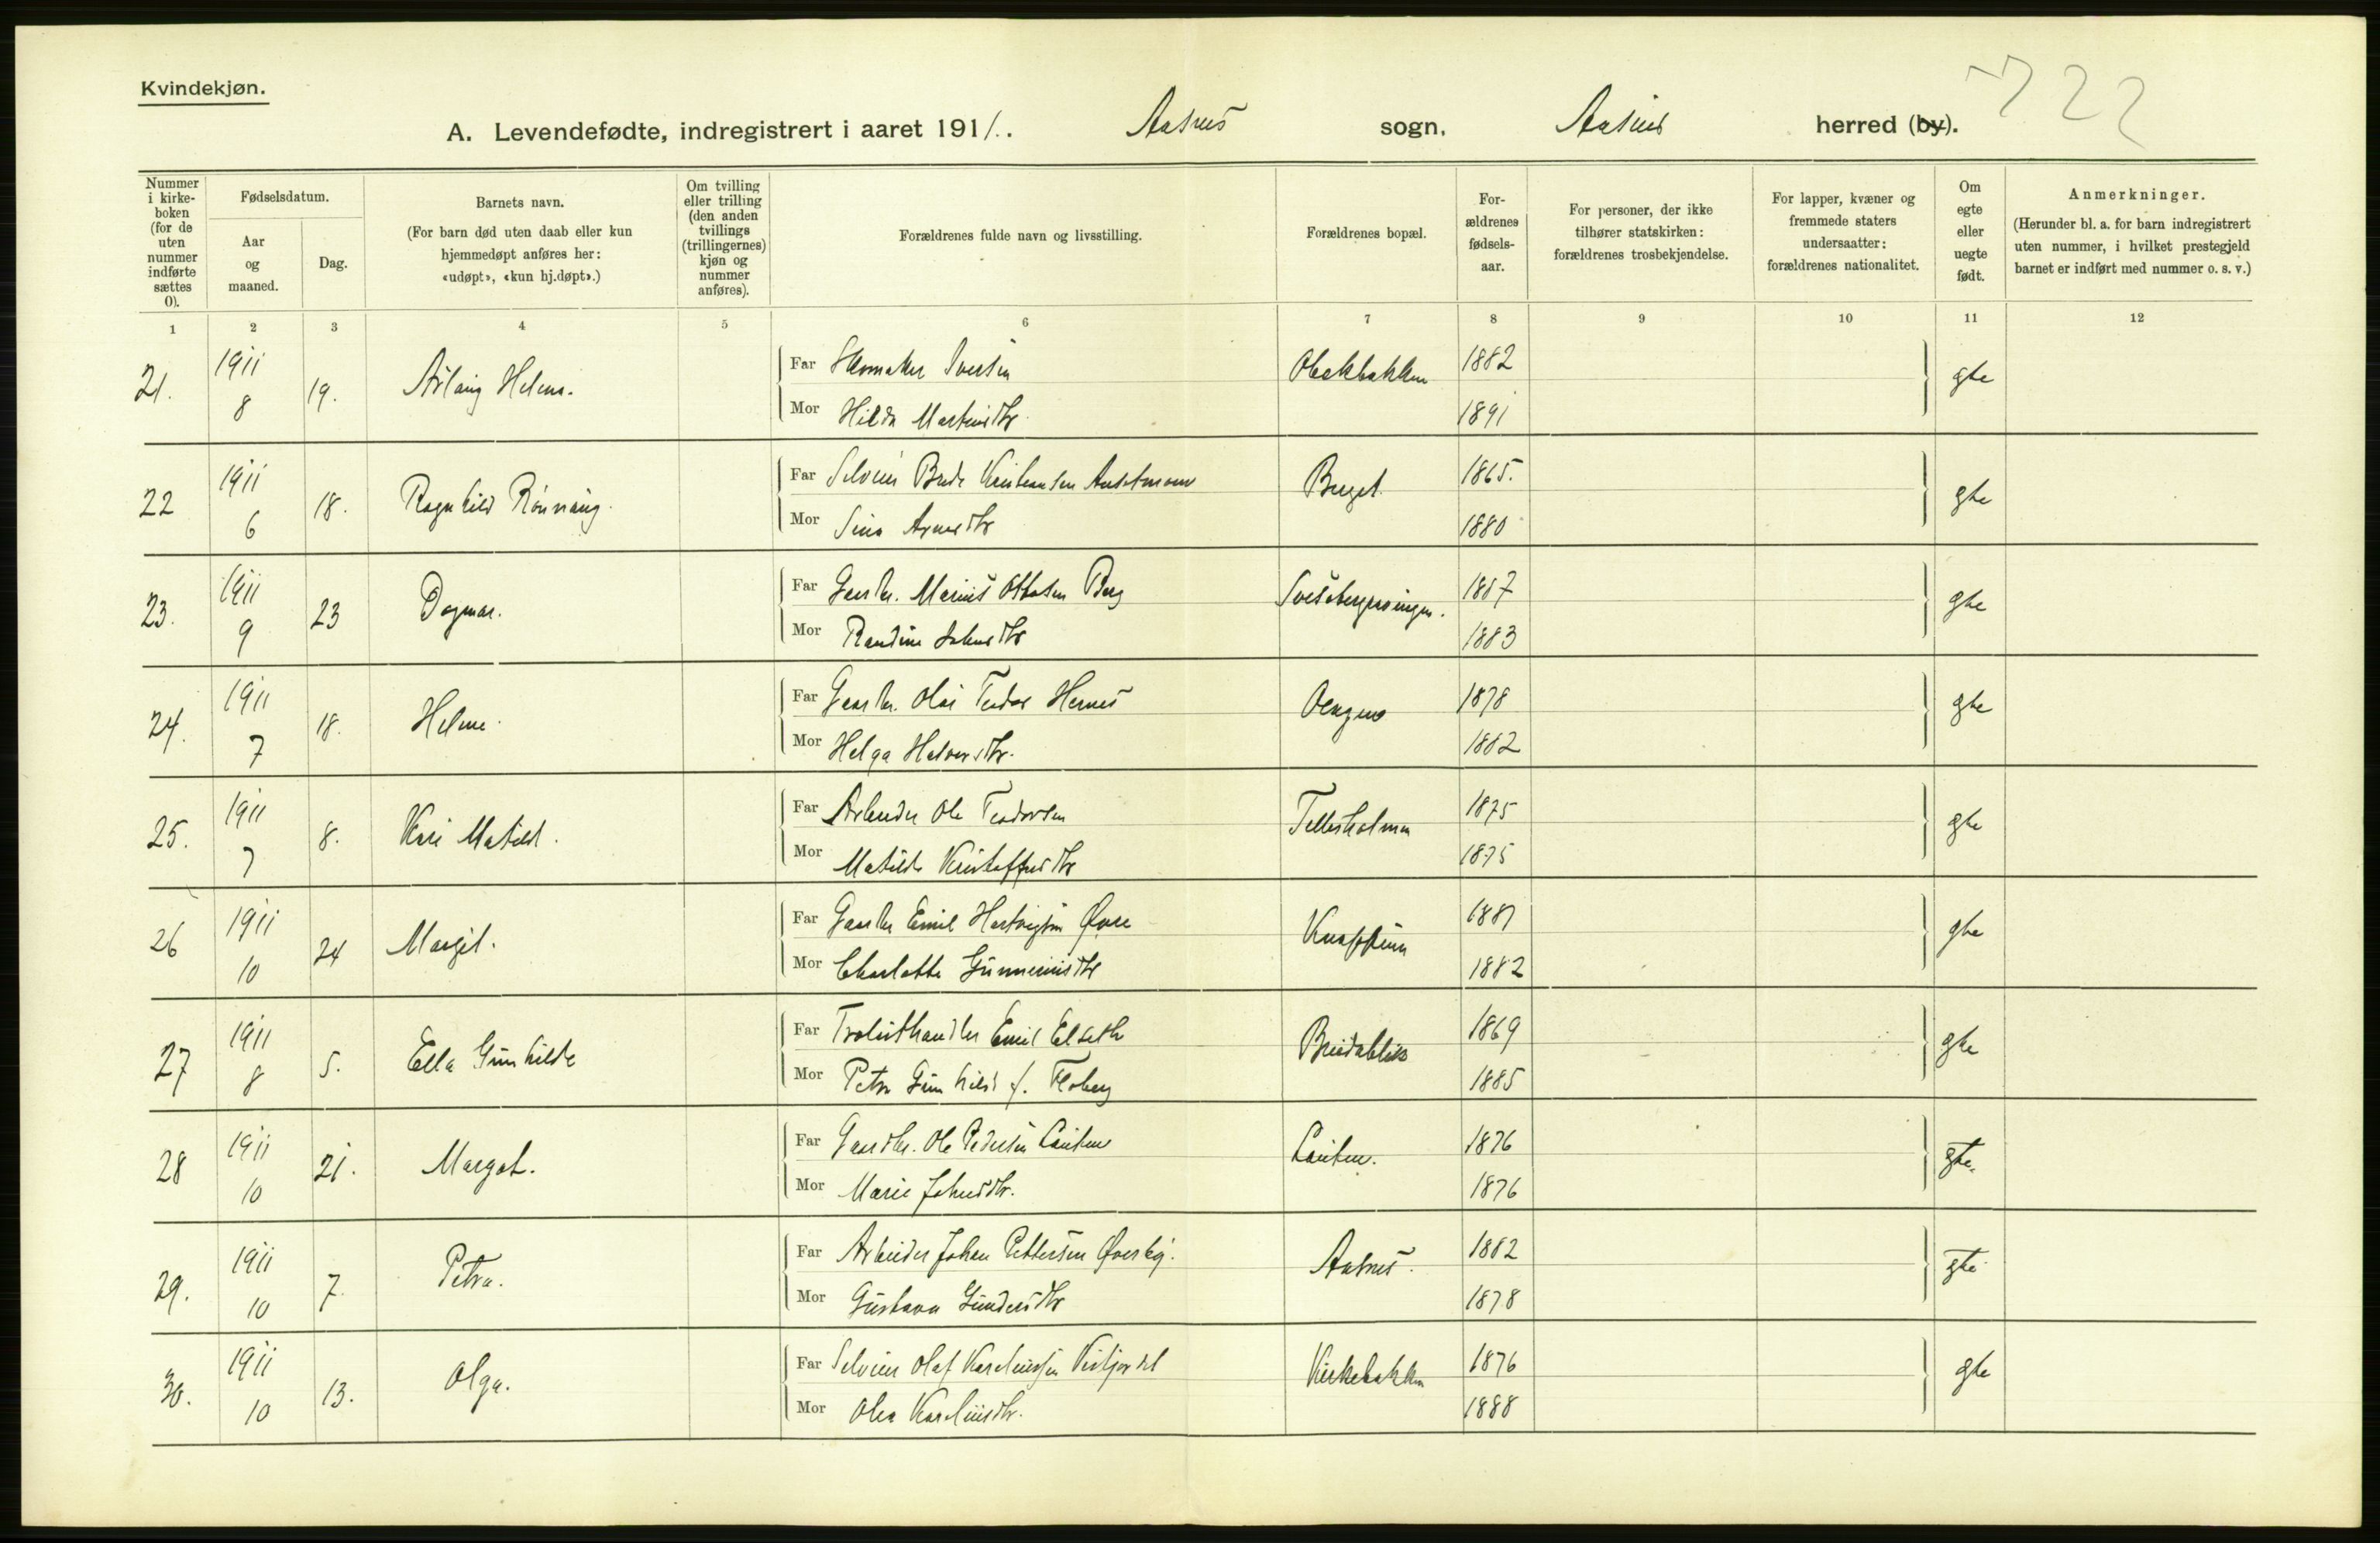 Kvindekjøn.
722
A. Levendefødte, indregistrert i aaret 1911. Aasnes sogn, Aasnes herred (by).
Nummer i kirkeboken (for de uten nummer indførte sættes 0).
Fødselsdatum.
Aar og maaned.
Dag.
Barnets navn.
(For barn død uten daab eller kun hjemmedøpt anføres her: «udøpt», «kun hj.døpt».)
Om tvilling eller trilling (den anden tvillings (trillingernes) kjøn og nummer anføres).
Forældrenes fulde navn og livsstilling.
Forældrenes bopæl.
Forældrenes fødselsaar.
For personer, der ikke tilhører statskirken: forældrenes trosbekjendelse.
For lapper, kvæner og fremmede staters undersaatter: forældrenes nationalitet.
Om egte eller uegte født.
Anmerkninger.
(Herunder bl. a. for barn indregistrert uten nummer, i hvilket prestegjeld barnet er indført med nummer o. s. v.)
1 2 3 4 5 6 7 8 9 10 11 12
21. 1911 8 19. Aslaug Helene. gte
Far Skomaker Iversen 1882
Mor Hilda Martinsdtr 1891
22 1911 6 18. Ragnhild Rønnaug. Berget. gte
Far Selveier 1865.
Mor Sina Arnesdtr 1880
23. 1911 9 23 Dagmar. gte
Far Gaardbr. Marius Ottosen Berg 1887
Mor Randine Johnsdtr 1883
24. 1911 7 18. Helene. gte
Far Gaardbr. Olai Teodor Hernes 1878
Mor Helga Halvorsdtr. 1882
25. 1911 7 8. Kari Matild. gte
Far Arbeider Ole Teodorsen 1875
Mor Matilde Kristoffersdtr 1875
26 1911 10 24 Margit. gte
Far Gaardbr Emil Hartvigsen 1881
Mor Charlotte Gunneriusdtr 1882
27 1911 8 5. Ella Gunhilde Breidablik gte
Far Trælasthandler Emil Elseth 1869
Mor Petra Gunhild f. Floberg 1885
28 1911 10 21. Margot. Lauten. gte.
Far Gaardbr. Ole Pedersen Lauten 1876
Mor Marie Johnsdtr. 1876
29. 1911 10 7. Petra. Aasnes. gte
Far Arbeider Johan Pettersen Øverby. 1882
Mor Gustava Gundersdtr 1878
30. 1911 10 13. Olga. Kirkebakken gte
Far Selveier Olaf Kareliussen 1876
Mor Olea Kareliusdtr. 1888